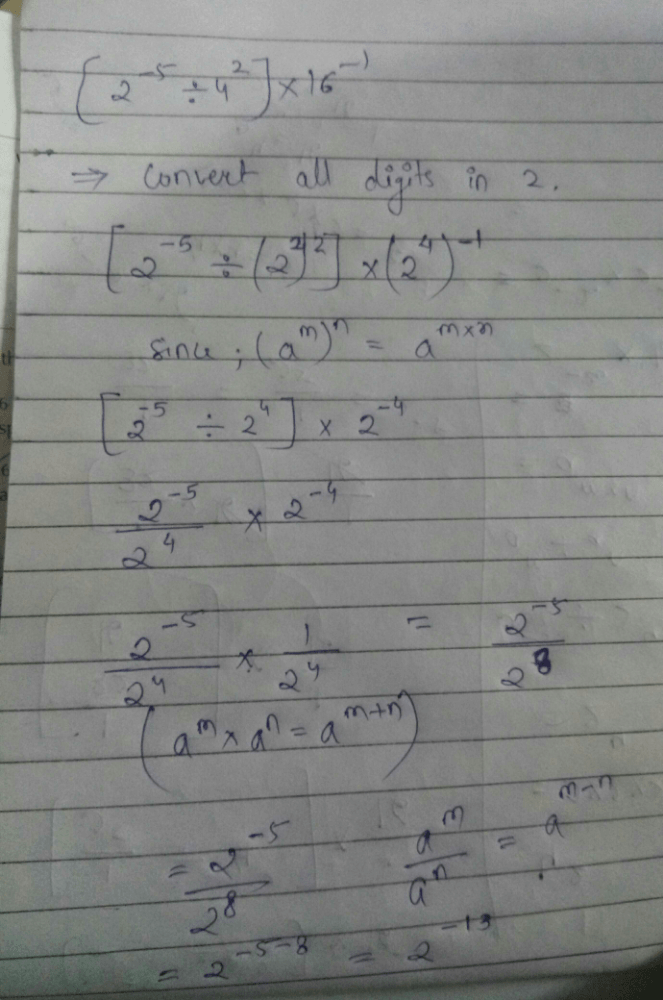 [2⁻⁵ ÷ 4²] × 16⁻¹
⇒ Convert all digits in 2.
[2⁻⁵ ÷ (2²)²] × (2⁴)⁻¹
Since ; (aᵐ)ⁿ = aᵐˣⁿ
[2⁻⁵ ÷ 2⁴] × 2⁻⁴
2⁻⁵/2⁴ × 2⁻⁴
2⁻⁵/2⁴ × 1/2⁴ = 2⁻⁵/2⁸
(aᵐ × aⁿ = aᵐ⁺ⁿ)
= 2⁻⁵/2⁸ aᵐ/aⁿ = aᵐ⁻ⁿ
= 2⁻⁵⁻⁸ = 2⁻¹³